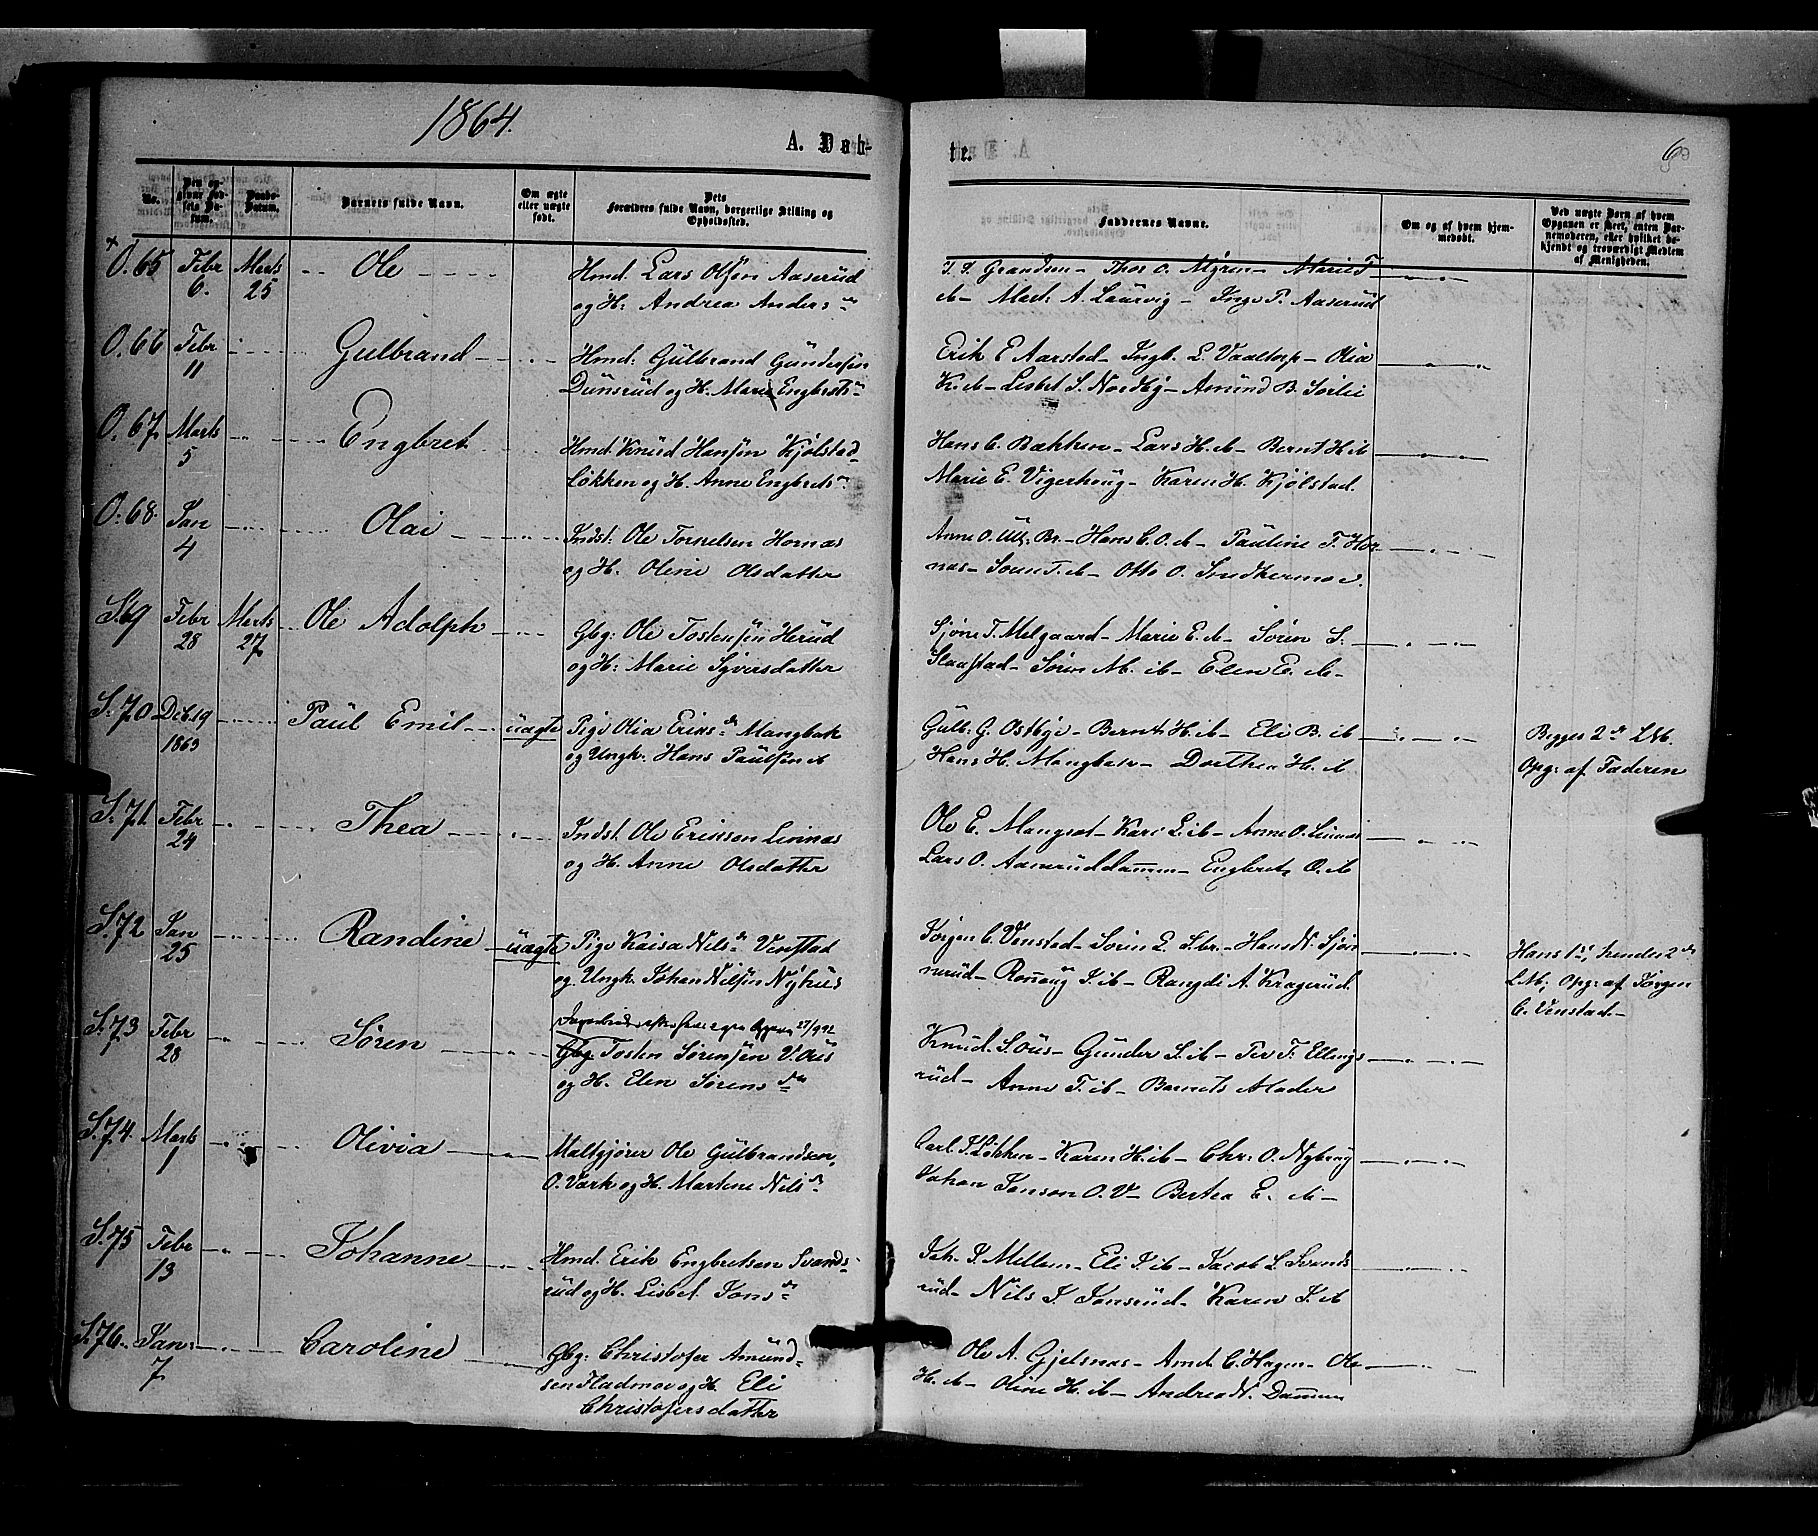 1864.
A. Døb-
te.
6
No.
Den opgivne Fødsels Datum.
Daabs-Datum.
Barnets fulde Navn.
Om ægte eller uægte født.
Dets Forældres fulde Navn, borgerlige Stilling og Opholdssted.
Faddernes Navne.
Om og af hvem hjemmedøbt.
Ved uægte Børn af hvem Opgaven er skeet, enten Barnemoderen, eller hvilket bekjendt og troværdigt Medlem af Menigheden.
O. 65 Febr 6. Marts 25 Ole
Hmd. Lars Olsen Aaserud
og H: Andrea Anders dr
Grandsen – Thor O. Myren – Marie T.
ib – Mad: A. Laurvig – Inge P. Aaserud
O. 66 Febr 11 Gulbrand
Hmd: Gulbrand Gundersen
Dunsrud og H. Marie Engbrets dr
Erik E Aarstad – Ingb. L. Vaaltorp – Olia
K. ib – Lisbet S. Nordby – Amund B. Sørlie
O. 67. Marts 5 Engbret
Hmd. Knud Hansen Kjølstad-
Løkken og H. Anne Engbrets dr
Hans C. Bakken – Lars H. ib – Bernt H. ib
Marie E. Vigerhoug – Karen H. Kjølstad.
O. 68. Jan 4 Olai
Indst: Ole Torkelsen Hornæs
og H. Oline Olsdatter
Anne O. Ull. Br. – Hans C. O. ib – Pauline T. Hor-
næs – Soren T. ib – Otto O. Sndkermoe.
S. 69 Febr 28 Marts 27 Ole Adolph
Gbg: Ole Tostensen Herud
og H: Marie Syversdatter
Sjøne T. Melgaard – Marie E. ib – Søren S.
Slaastad – Søren M. ib – Elen E. ib –
S. 70 Dcb. 19 1863 Paul Emil uægte
Pige Olia Eriks dr Mangbak
og Ungk. Hans Paulsen ib
Gulb. G. Ostbye – Bernt H. ib – Eli B. ib
Hans H. Mangbak – Dorthea H. ib
Begges 2de LM.
Opg: af Faderen
S. 71. Febr 24 Thea
Indst. Ole Eriksen Linnæs
og H. Anne Olsdatter
Ole E. Mangset – Kari L. ib – Anne O. Linnæs
Lars O. Aaseruddammen – Engbret O. ib
S. 72 Jan 25 Randine uægte
Pige Kaisa Nils dr Venstad
og Ungk. Johan Nilsen Nyhus
Jørgen C. Venstad – Søren L. Sbr. – Hans N. Sjøn-
nerud – Ronnoug J. ib – Rangdi A. Kragerud.
Hans 1ste, hendes 2de
LM; Opg: af Jørgen
C. Venstad –
S. 73 Febr 28 Søren
27/9 92
Gbg Tosten Sørensen V. Ous
og H. Elen Sørens dr
Knud S. Ous – Gunder S. ib – Per F. Ellings-
rud – Anne T. ib – Barnets Moder
S. 74. Marts 7 Olivia
Maltgjører Ole Gulbrandsen,
O. Vark og H. Martine Nils dr
Carl J. Løkken – Karen H. ib – Chr: O. Nybrag
Johan Jonson O. V – Bertea E. ib –
S. 75 Febr 13 Johanne
Hmd. Erik Engbretsen Svends-
rud og H. Lisbet Jons dr
Joh. J. Mellem – Eli J. ib – Jacob L. Svends-
rud – Nils J. Jonsrud – Karen J. ib
S. 76. Jan: 7 Caroline
Gbg: Christofer Amund-
sen Fladmoe og H. Eli
Christofersdatter
Ole A. Gjelsnæs – Amd. C. Hagen – Ole
H. ib – Oline H. ib – Andrea N. Dammen